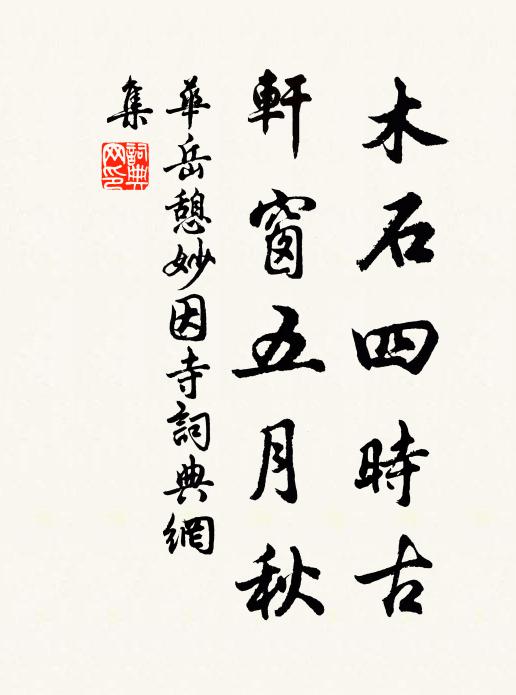 木石四時古
軒窗五月秋
華岳憩妙因寺詞典網
集
詞典
网印